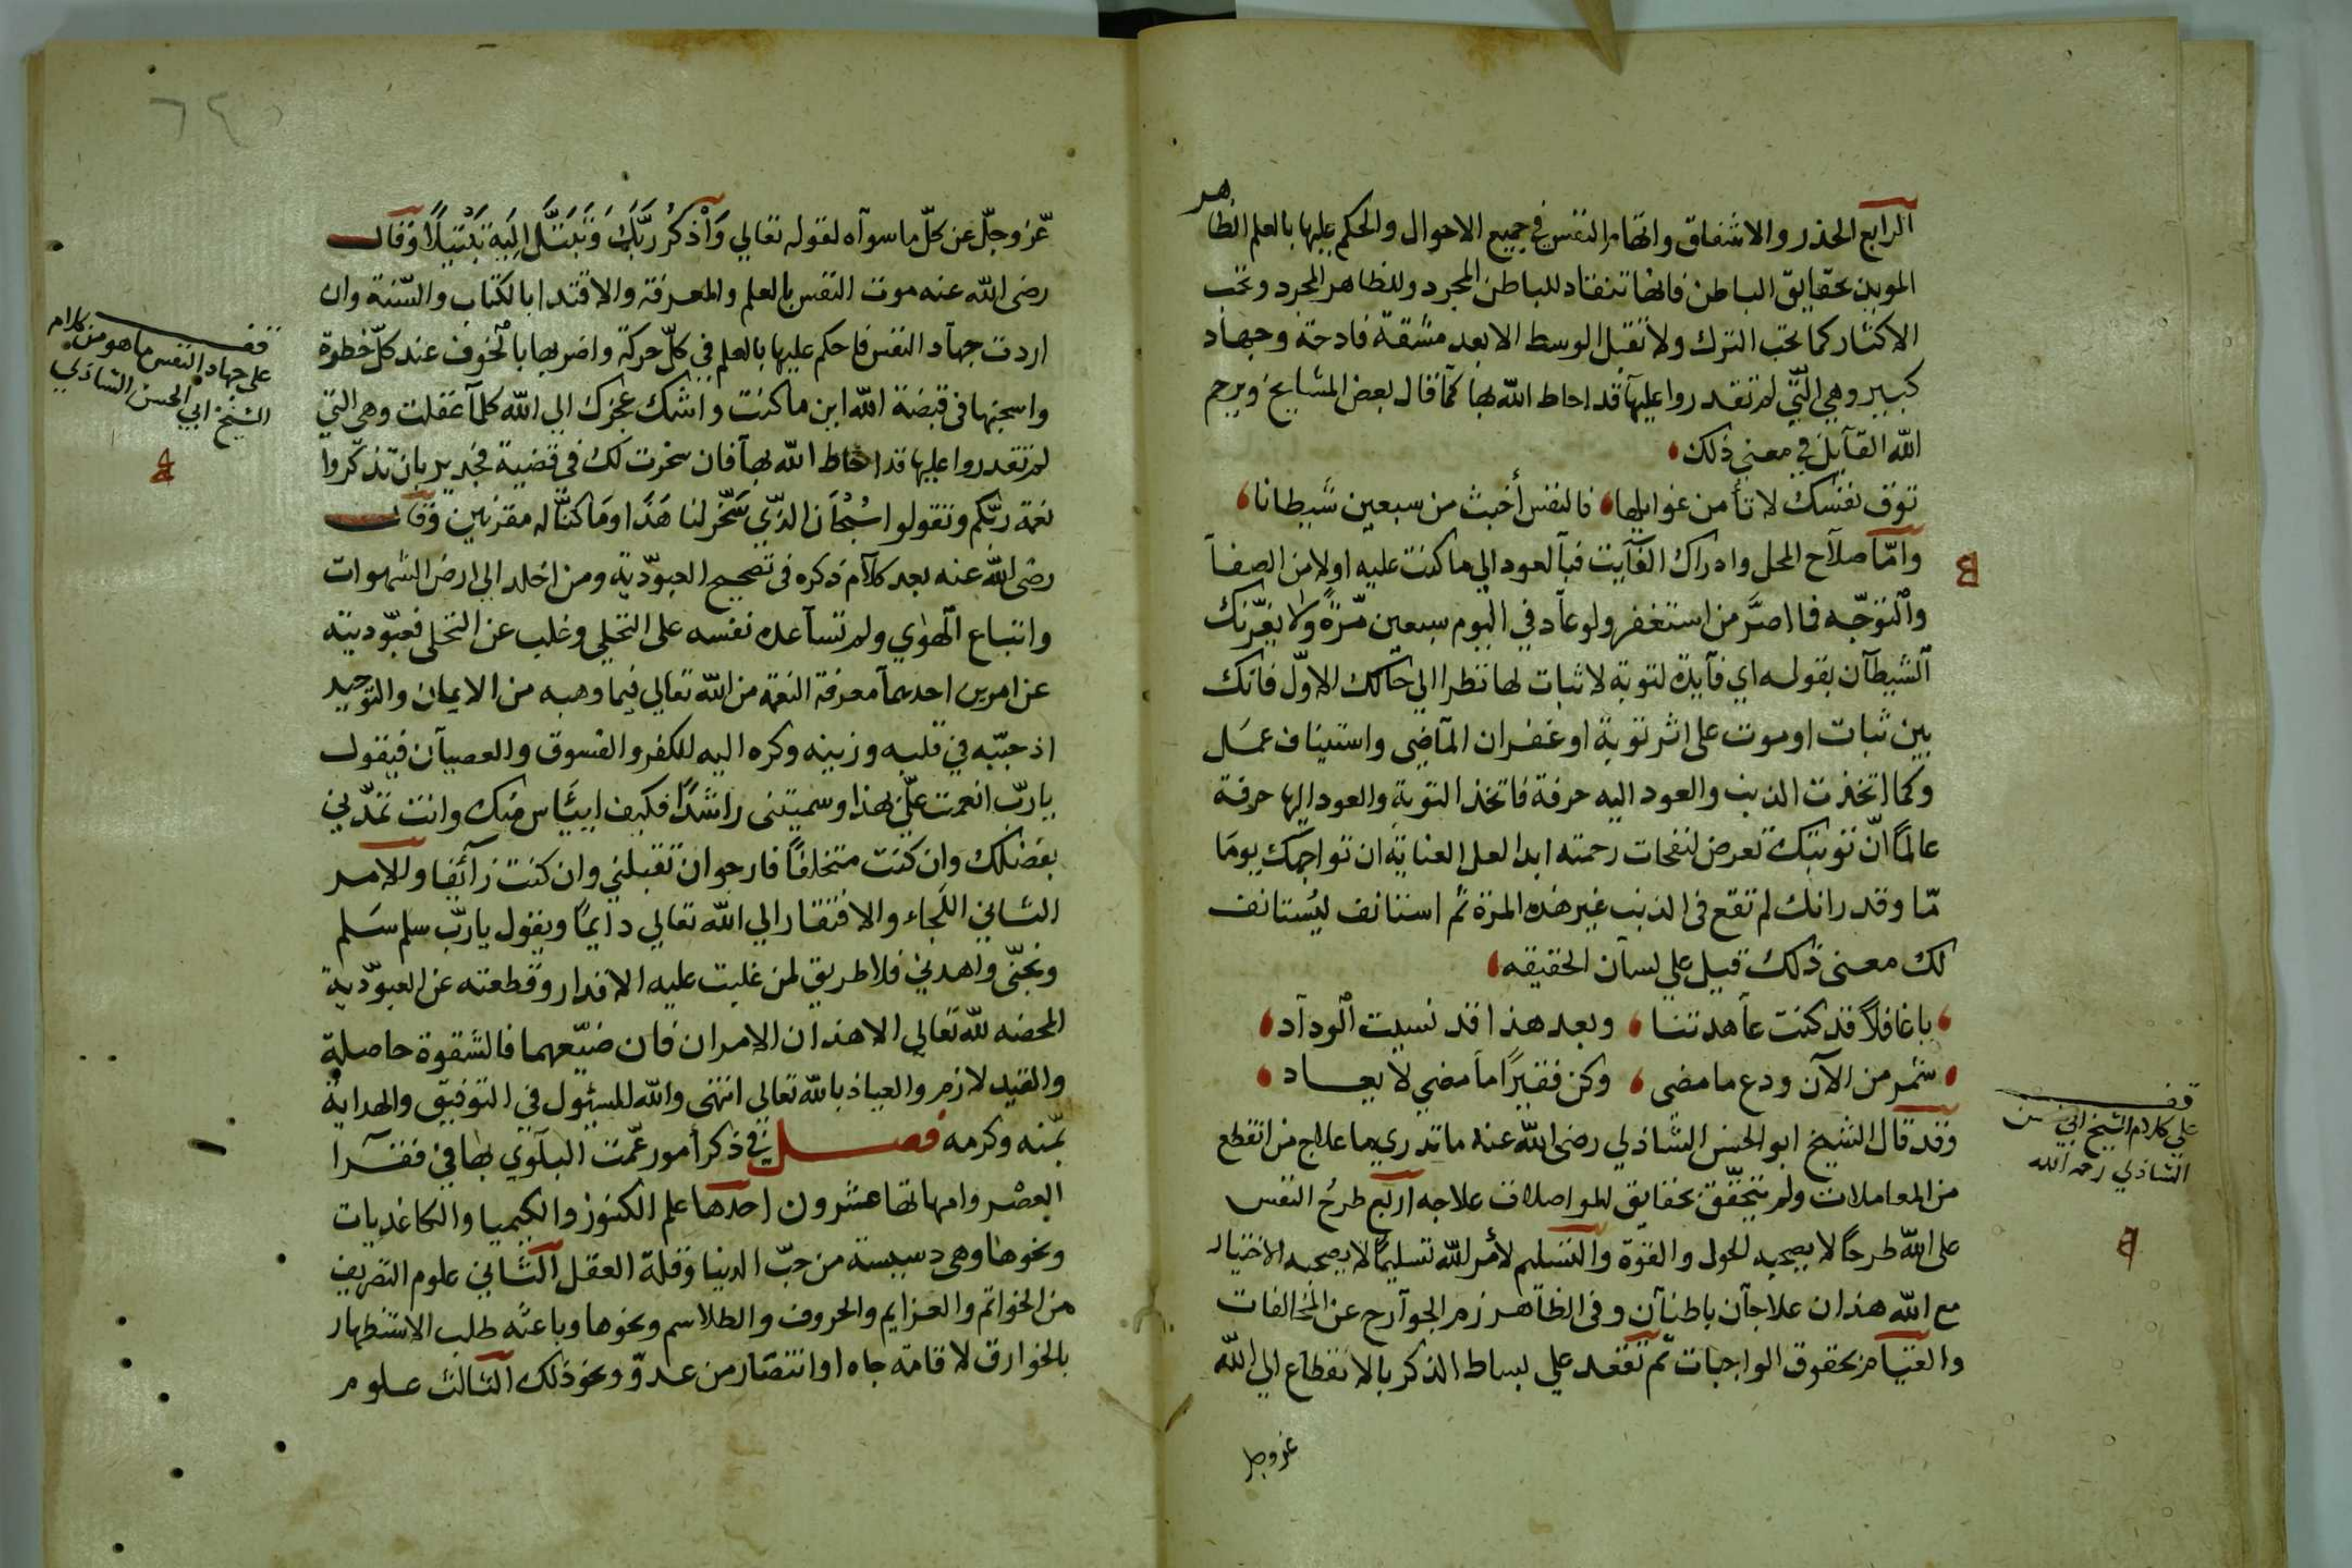 الرابع الحذر والاشفاق واتهام النفس في جميع الاحوال والحكم عليها بالعلم الظاهر
المويد بحقايق الباطن فانها تنقاد للباطن المجرد وللظاهر المجرد وتحب
الاكثار كما تحب الترك ولا تقبل الوسط الا بعد مشقة فادحة وجهاد
كبير وهي التي لم تقدروا عليها قد احاط الله بها كما قال بعض المشايخ ويرحم
الله القايل في معني ذلك
توق نفسك لا تأمن غوايلها فالنفس أخبث من سبعين شيطانا
وامّا صلاح المحل وادراك الفايت فبالعود الي ما كنت عليه اولا من الصفا
والتوجّه فما اصرّ من استغفر ولو عاد في اليوم سبعين مرّة ولا يغرّنك
الشيطان بقوله اي فآيدة لتوبة لا ثبات لها نظرا الي حالك الاوّل فانك
بين ثبات او موت علي اثر توبة او غفران الماضي واستيناف عمل
وكما اتخذت الذنب والعود اليه حرفة فاتخذ التوبة والعود اليها حرفة
عالمًا انّ توبتك تعرض لنفحات رحمته ابدا لعل العناية ان تواجهك يومًا
مّا وقدر انك لم تقع في الذنب غير هذه المرة ثم استانف ليُستانف
لك معني ذلك قيل علي لسان الحقيقه
ياغافلاً قد كنت عاهدتنا وبعد هذا قد نسيت الوداد
شمّر من الآن ودع ما مضي وكن فقيرًا ما مضي لا يعاد
وقد قال الشيخ ابو الحسن الشاذلي رضي الله عنه ما تدري ما علاج من انقطع
من المعاملات ولم يتحقّق بحقايق المواصلات علاجه اربع طرحُ النفس
علي الله طرحًا لا يصحبه الحول والقوّة والتسليم لأمر الله تسليمًا لا يصحبه الاختيار
مع الله هذان علاجان باطنان وفي الظاهر زم الجوارح عن المخالفات
والقيام بحقوق الواجبات ثم تقعد علي بساط الذكر بالانقطاع الي الله
عزوجل
قف
علي كلام الشيخ ابي الحسن
الشاذلي رحمه الله
عزّ وجلّ عن كلّ ما سوآه لقوله تعالي وَاذْكُرْ رَبَّكَ وَتَبَتَّل اِليَهِ تَبْتيلًا وقال
رضي الله عنه موت النفس بالعلم والمعرفة والاقتدا بالكتاب والسّنة وان
اردت جهاد النفس فاحكم عليها بالعلم في كلّ حركة واضربها بالخوف عند كلّ خطوة
واسجنها في قبضة الله اين ما كنت واشك عجزك الي الله كلما غفلت وهي التي
لم تقدروا عليها قد احاط الله بها فان سخرت لك في قضية فجدير بان تذكّروا
نعمة ربّكم وتقولوا سُبْحَان الذّي سَخّر لنا هَذَا ومَا كنّا له مقرنين وقال
رضي الله عنه بعد كلام ذكره في تصحيح العبوّدية ومن اخلد الي ارض الشهوات
واتباع الهوٰي ولم تساعده نفسه علي التخلي وغلب عن التحلي فعبوّديته
عن امرين احدهما معرفة النعمة من الله تعالي فيما وهبه من الايمان والتوحيد
اذ حببّه في قلبه وزينه وكره اليه للكفر والفسوق والعصيان فيقول
يا ربّ انعمت عليّ بهذا وسميتني راشدًا فكيف اييَّاس منك وانت تمدّني
بفضلك وان كنت متخلفًا فارجو ان تقبلني وان كنت زآئفا والامر
الثاني اللَجاء والافتقار الي الله تعالي دايمًا ويقول ياربّ سلم سَلم
ونجنّي واهدني فلا طريق لمن غلبت عليه الاقدار وقطعته عن العبوّدية
المحضه لله تعالي الا هذان الامران فان ضيّعهما فالشقوة حاصلة
والقيد لازم والعياذ بالله تعالي انتهي والله المسئول في التوفيق والهداية
بمّنه وكرمه فصل في ذكر أمور عمّت البلَوي بها في فقرا
العصْر وامهاتها عشرون احدها علم الكنوز والكيميا والكاغديات
ونحوها وهي دسيسة من حبّ الدنيا وقلة العقل الثاني علوم التصريف
من الخواتم والعزايم والحروف والطلاسم ونحوها وباعثه طلب الاستظهار
بالخوارق لاقامة جاه او انتصار من عدوّ ونحو ذلك الثالث علوم
قف
علي جهاد النفس ما هو من كلام
الشيخ ابي الحسن الشاذلي